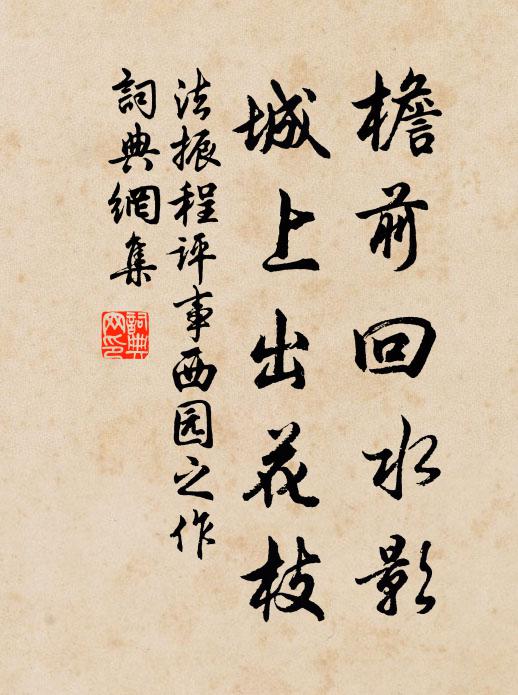 檐前回水影
城上出花枝
法振程评事西园之作
詞典網集
詞典網印